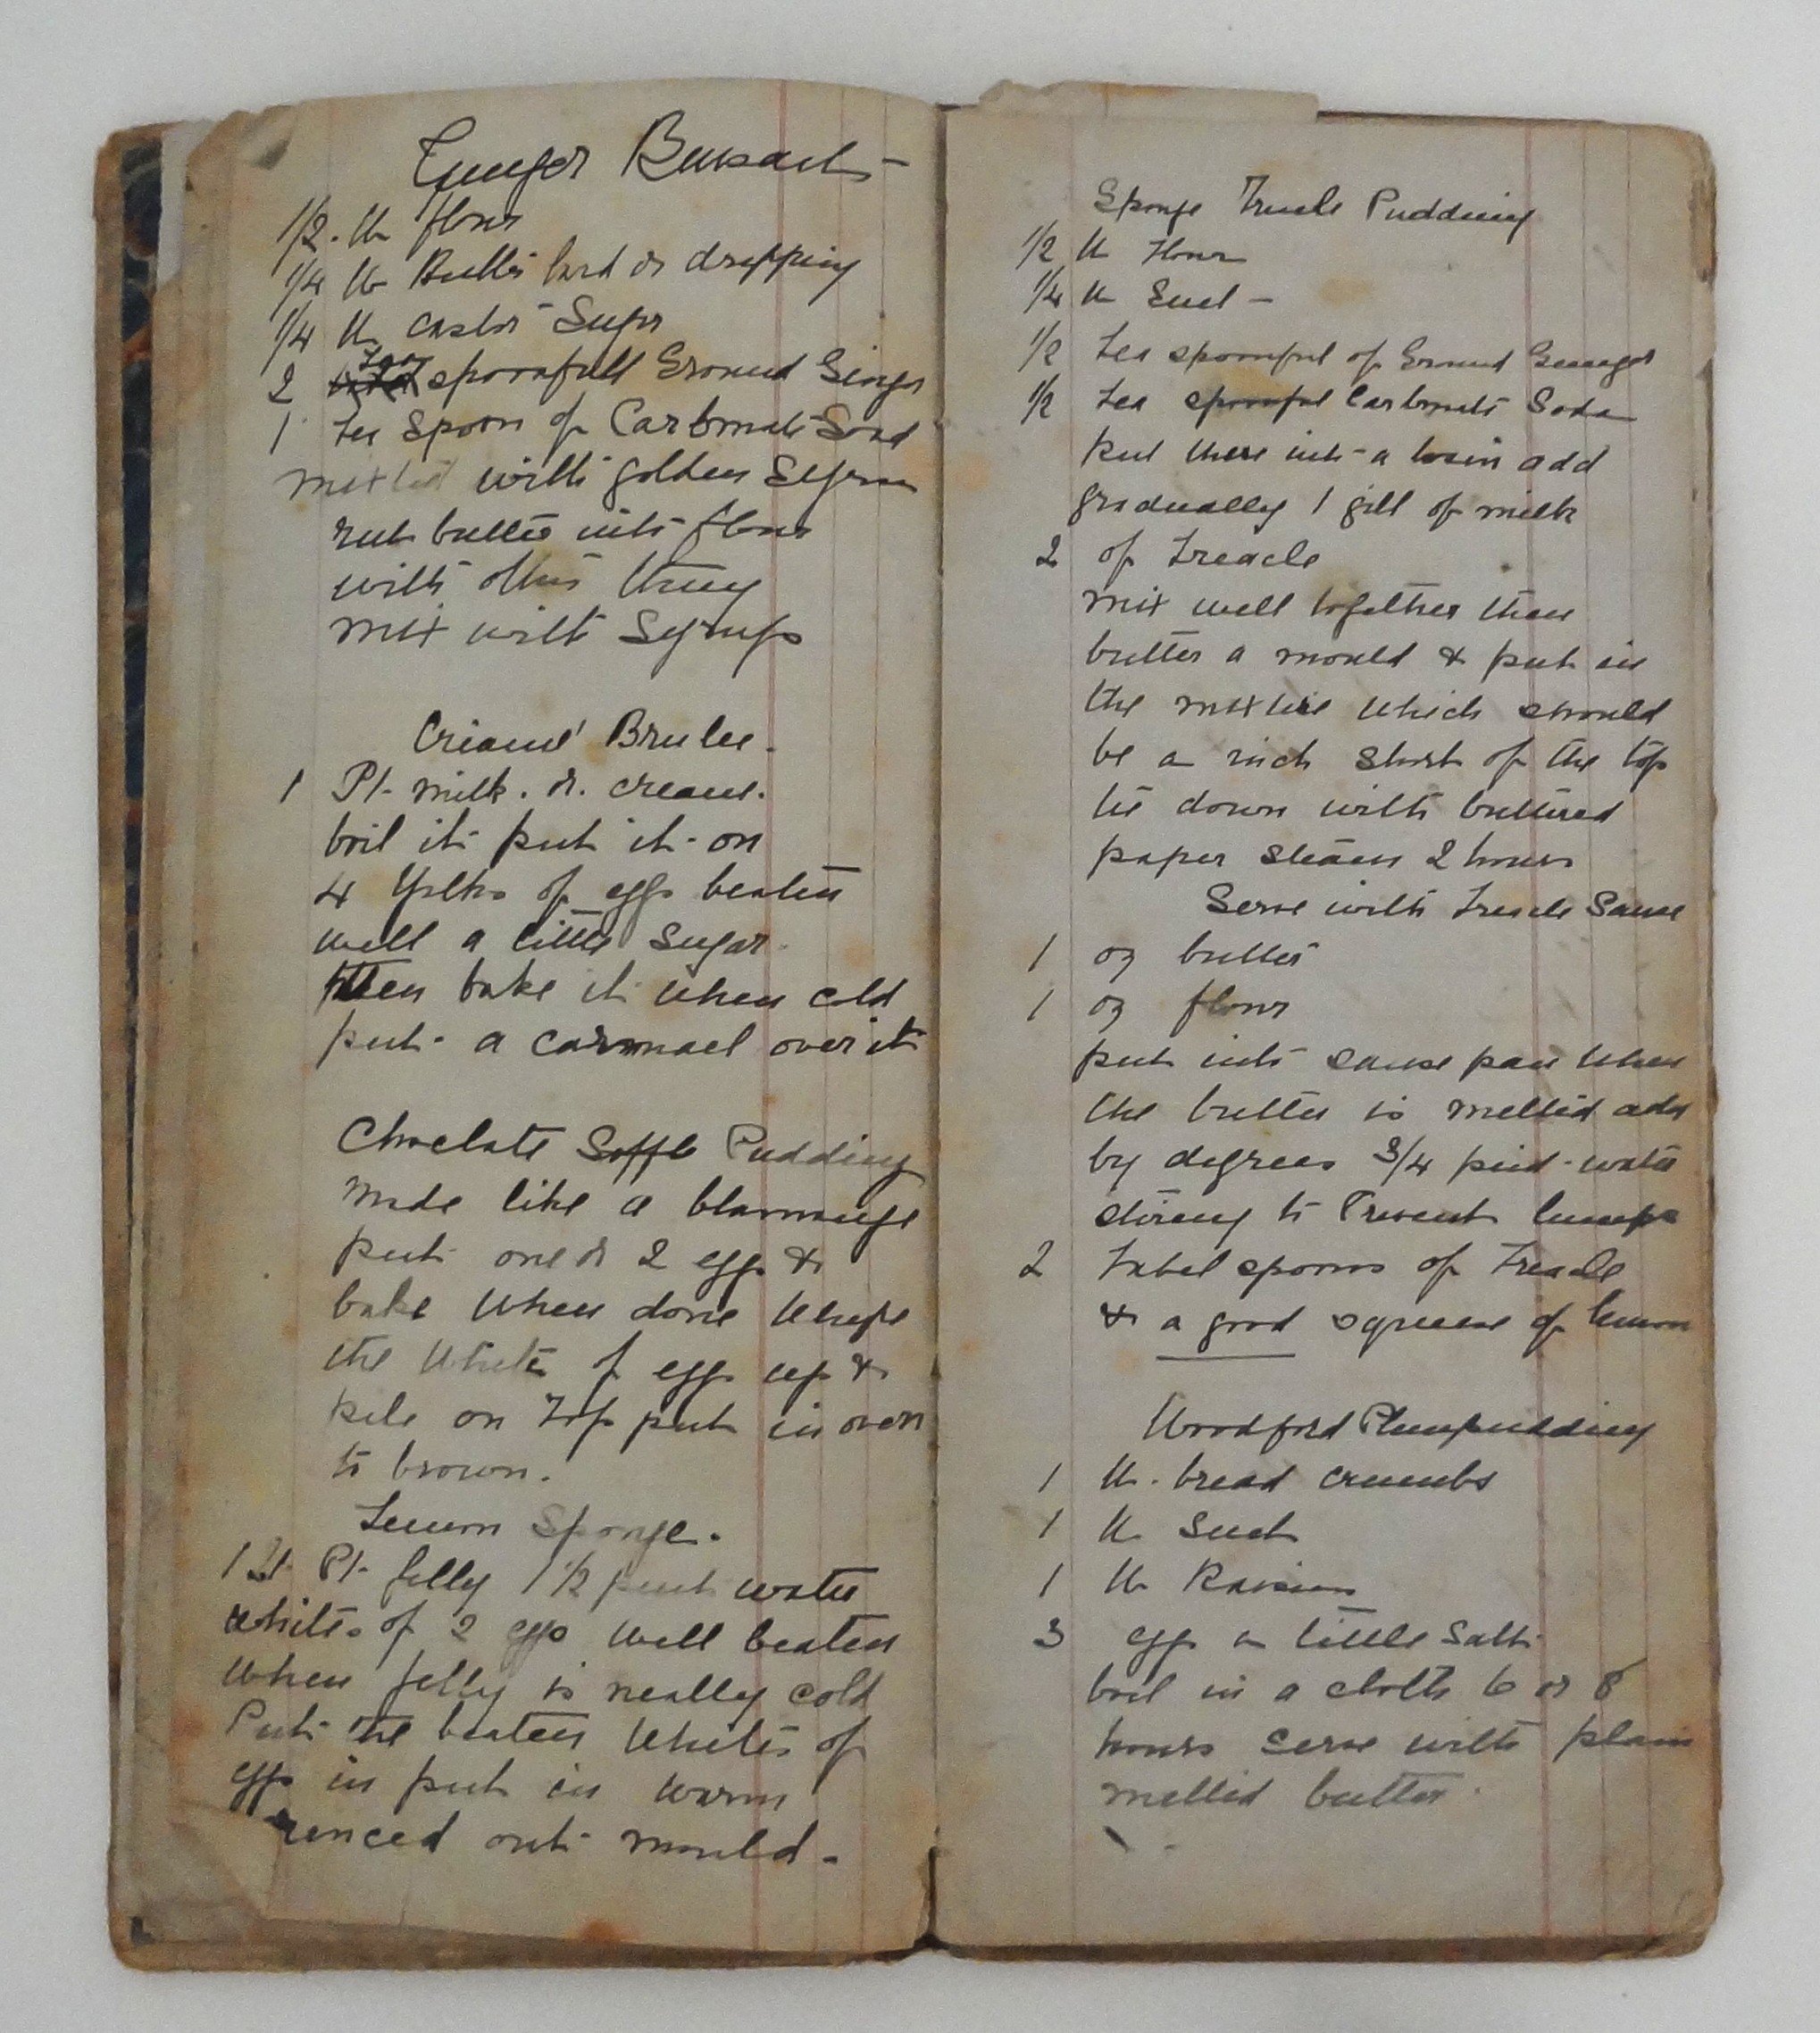 Ginger
1/2 lb flour
1/4 lb Butter lard or dripping
1/4 lb castor Sugar
2 Tea spoonfull Ground Ginger
1 tea Spoon of Carbonate Soad
with golden Syrup
rub butter into flour
with other thing
mix with Syrup
Creamé Brulee.
1 Pt. milk. or. cream.
boil it put it on
4 Yolks of eggs beaten
well a little sugar.
then bake it when cold
put a carmael over it
Choclate Soffle Pudding
made like a blamange
put one or 2 egg &
bake When done Whipe
the White of eggs up &
pile on Top put in oven
to brown.
Lemon Sponge.
1 Pt. Jelly 1 1/2 pint water
whites of 2 eggs Well beaten
When Jelly is really cold
Put the beaten Whites of
eggs in put in warm
renced out mould.
Sponge Treacle Pudding
1/2 lb Flour
1/4 lb Suet
1/2 tea spoonful of Ground Ginger
1/2 tea spoonful Carbonate Soda
put these into a basin add
gradually 1 gill of milk
2 of Treacle
mix well together then
butter a mould & put in
the mixture which should
be a inch short of the top
tie down with buttered
paper steam 2 hours
Serve with Treacle Sauce
1 oz butter
1 oz flour
put into sause pan when
the butter is melted add
by degrees 3/4 pint water
stiring to Prevent lumps
2 Tabel spoons of Treacle
& a good squeese of lemon
Woodford Plumpudding
1 lb. bread crumbs
1 lb Suet
1 lb Raisins
3 eggs a little Salt
boil in a cloth 6 or 8
hours serve with plain
melted butter.